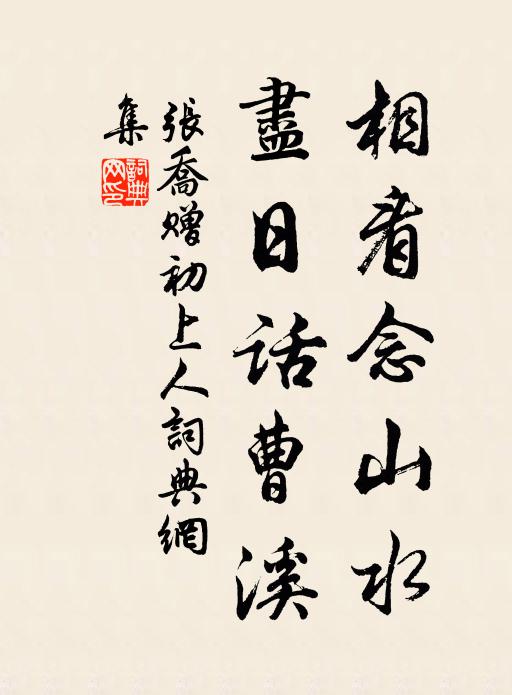 相看念山水
盡日話曹溪
張喬贈初上人詞典網
集
詞典網印